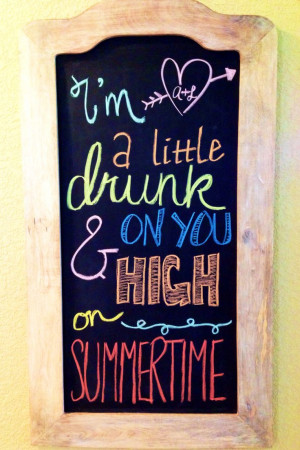 I'm A+L
a little
drunk
& ON YOU
HIGH
on
SUMMERTIME